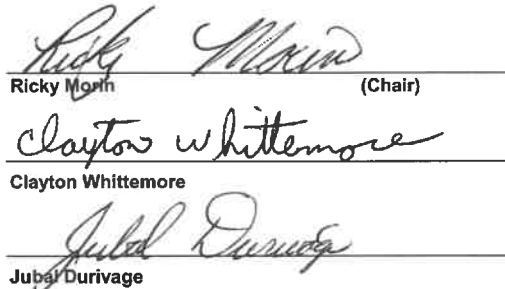 Ricky Morin
Ricky Morin (Chair)
Clayton Whittemore
Clayton Whittemore
Jubal Durivage
Jubal Durivage